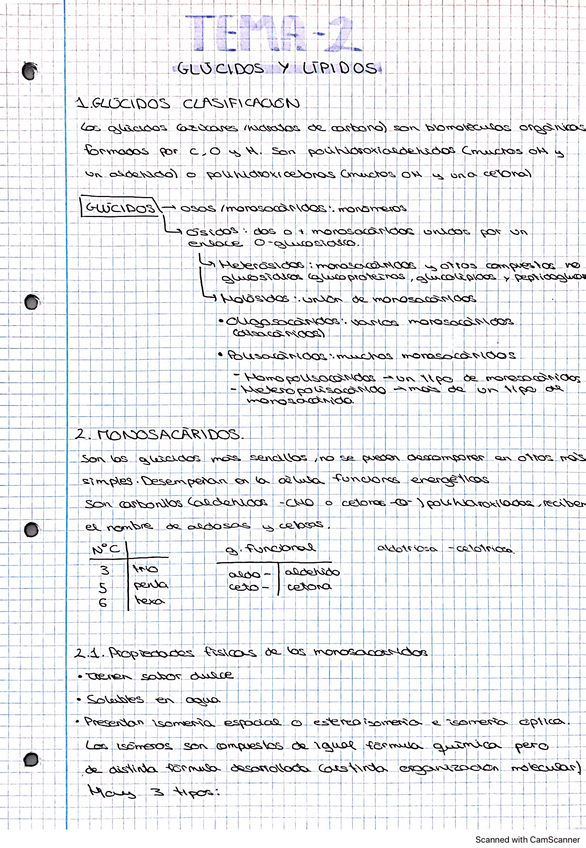 TEMA-2
GLÚCIDOS Y LÍPIDOS.
1. GLÚCIDOS CLASIFICACIÓN
Los glúcidos (azúcares/hidratos de carbono) son biomoléculas orgánicas
formadas por C, O y H. Son polihidroxialdehídos (muchos OH y
un aldehído) o polihidroxicetonas (muchos OH y una cetona)
GLÚCIDOS → osas/monosacáridos: monómeros
↳ ósidos: dos o + monosacáridos unidos por un
enlace O-glucosídico.
↳ Heterósidos: monosacáridos y otros compuestos no
glucosídicos (glucoproteínas, glucolípidos, y peptidoglucano
↳ Holósidos: unión de monosacáridos
• Oligosacáridos: varios monosacáridos
(disacáridos)
• Polisacáridos: muchos monosacáridos
- Homopolisacáridos → un tipo de monosacáridos
- Heteropolisacárido → más de un tipo de
monosacárido.
2. MONOSACÁRIDOS.
Son los glúcidos más sencillos, no se pueden descomponer en otros más
simples. Desempeñan en la célula funciones energéticas
Son carbonilos (aldehídos -CHO o cetonas -CO-) polihidroxilados, reciben
el nombre de aldosas y cetosas.
NºC g. funcional aldotriosa - cetotriosa
3 trio aldo- aldehído
5 penta ceto- cetona
6 hexa
2.1. Propiedades físicas de los monosacáridos
• Tienen sabor dulce
• Solubles en agua
• Presentan isomería espacial o estereoisomería e isomería óptica.
Los isómeros son compuestos de igual fórmula química pero
de distinta fórmula desarrollada (distinta organización molecular)
Hay 3 tipos:
Scanned with CamScanner